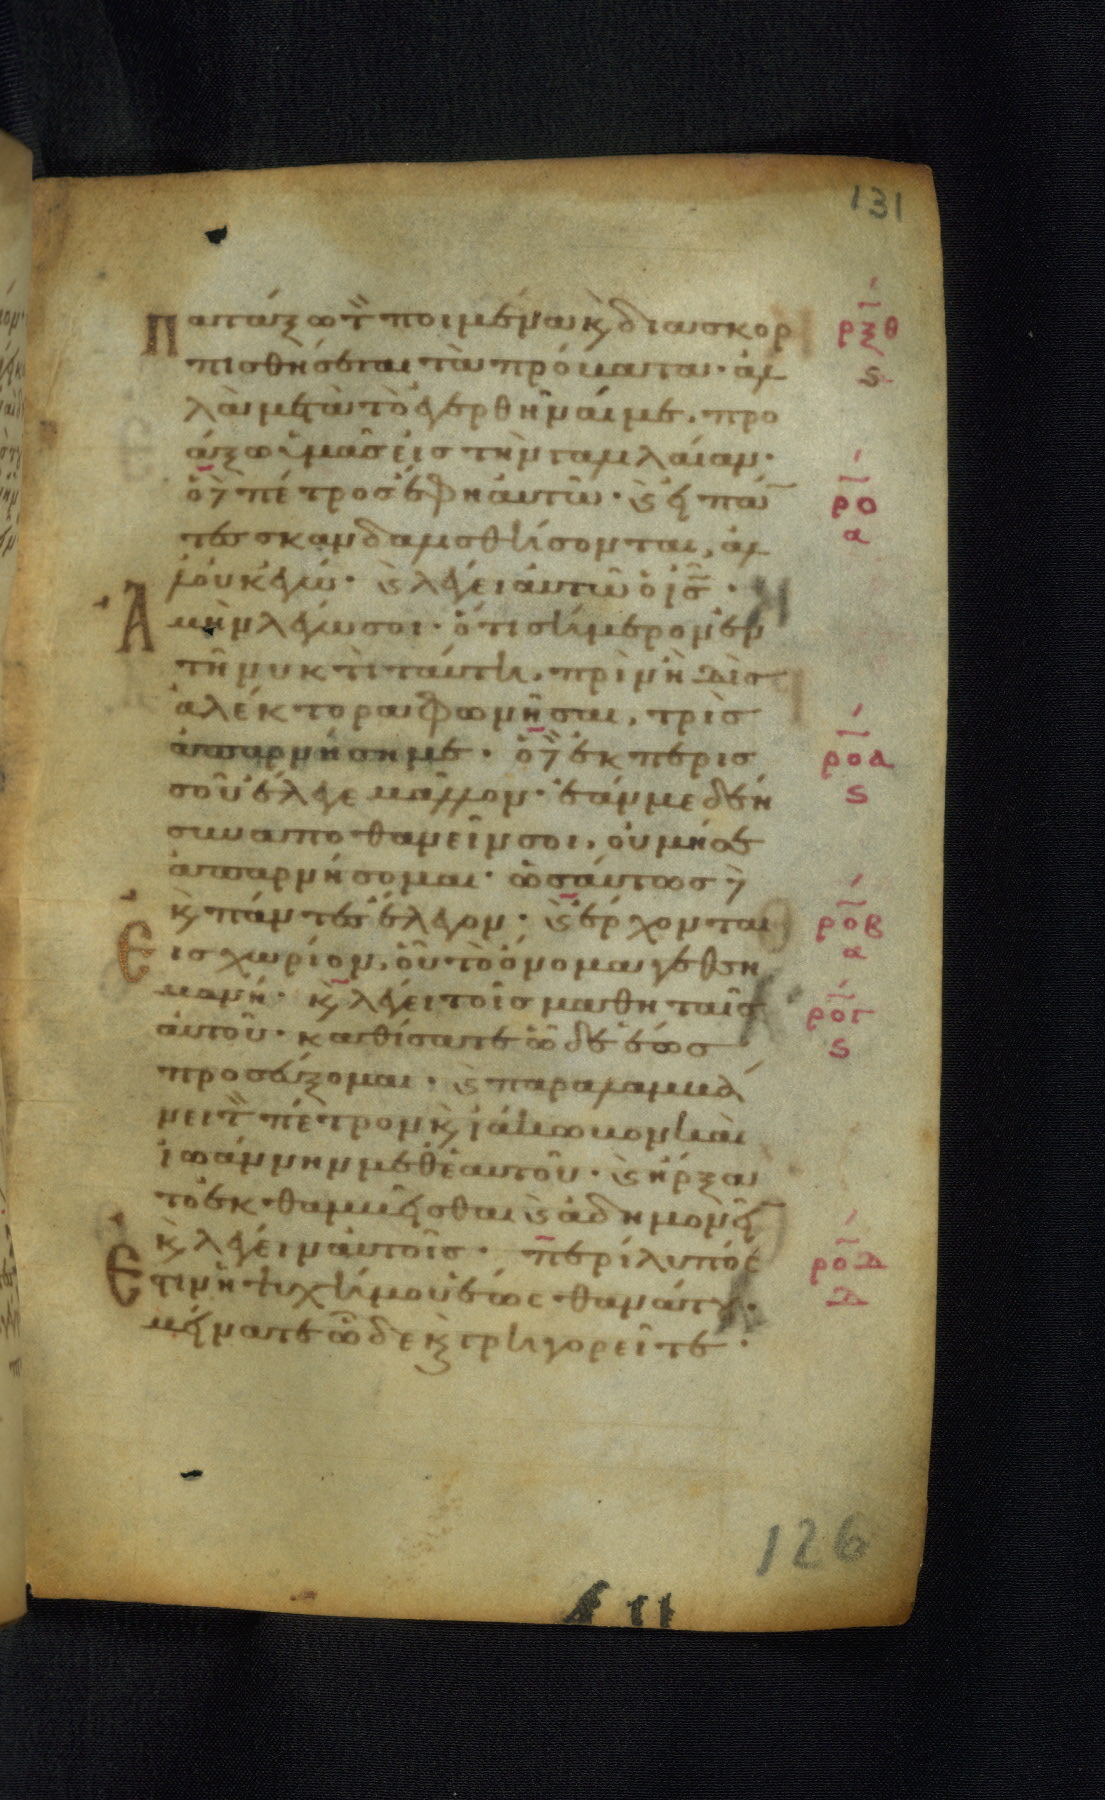 131
Πατάξω τ̀ ποιμένα κ̀ διασκορ
πισθήσεται τὰ πρόβατα· ἀλ
λὰ μετὰ τὸ ἐγερθῆναί με, προ
άξω ὑμᾶς εἰς τὴν γαλιλαίαν·
ὁ δ̀ πέτρος ἔφη αὐτῶ· κ̀ εἰ πάν
τες σκανδαλισθήσονται, ἀλ
λ οὐκ ἐγώ· κ̀ λέγει αὐτῶ ὁ ις̅·
Ἀμὴν λέγω σοι· ὅτι σήμερον ἐν
τῆ νυκτὶ ταύτη, πρὶν ἢ δὶς
ἀλέκτορα φωνῆσαι, τρὶς
ἀπαρνήση με· ὁ δ̀ ἐκ περισ
σοῦ ἔλεγε μᾶλλον· ἐάν με δέη
συναποθανεῖν σοι, οὐ μή σε
ἀπαρνήσομαι· ὡσαύτως δ̀
κ̀ πάντες ἔλεγον· κ̀ ἔρχονται
Εἰς χωρίον, οὗ τὸ ὄνομα γεθση
μανή· κ̀ λέγει τοῖς μαθηταῖς
αὐτοῦ· καθίσατε ὧδε ἕως
προσεύξομαι· κ̀ παραλαμβά
νει τ̀ πέτρον κ̀ ἰάκωβον καὶ
ἰωάννην μεθ ἑαυτοῦ· κ̀ ἤρξα
το ἐκθαμβεῖσθαι κ̀ ἀδημονεῖν
κ̀ λέγει αὐτοῖς· περίλυπός
Ἐστιν ἡ ψυχή μου ἕως θανάτου·
μείνατε ὧδε κ̀ γρηγορεῖτε·
ρξθ
ς
ρο
α
ροα
ς
ροβ
α
ρογ
ς
ροδ
δ
126